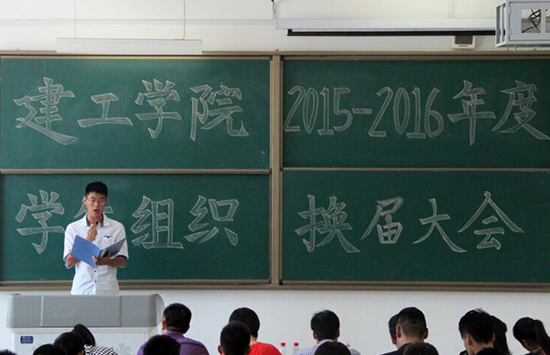 建工学院
2015-2016年度
学生组织
换届大会